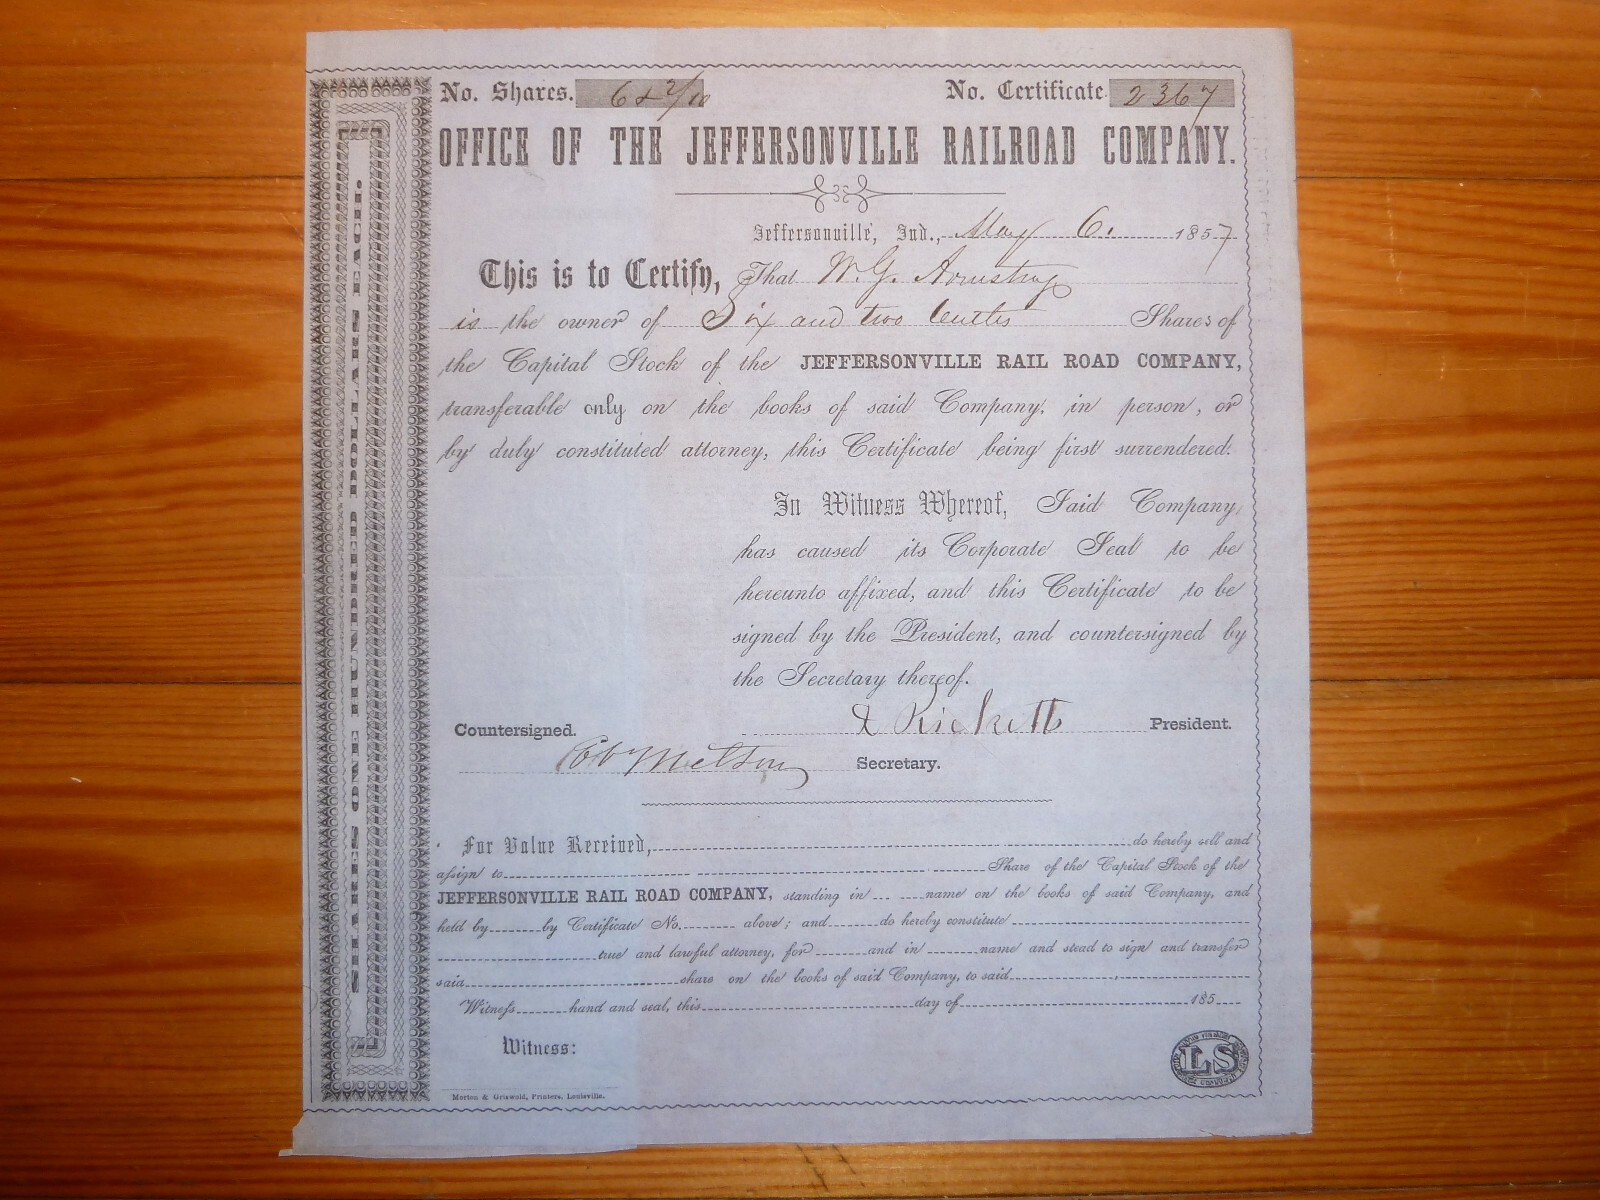 No. Shares. 6 & 2/10 No. Certificate 2367
OFFICE OF THE JEFFERSONVILLE RAILROAD COMPANY.
Jeffersonville, Ind., May 6. 1857
This is to Certify, That W. G. Armstrong
is the owner of Six and two Tenths Shares of
the Capital Stock of the JEFFERSONVILLE RAIL ROAD COMPANY,
transferable only on the books of said Company, in person, or
by duly constituted attorney, this Certificate being first surrendered.
In Witness Whereof, Said Company,
has caused its Corporate Seal to be
hereunto affixed, and this Certificate to be
signed by the President, and countersigned by
the Secretary thereof.
Ricketts President.
Countersigned.
Secretary.
For Value Received, do hereby sell and
assign to Share of the Capital Stock of the
JEFFERSONVILLE RAIL ROAD COMPANY, standing in name on the books of said Company, and
held by by Certificate No. above; and do hereby constitute
true and lawful attorney, for and in name and stead to sign and transfer
said share on the books of said Company, to said
Witness hand and seal, this day of 185
Witness:
LS
Morton & Griswold, Printers, Louisville.
SHARES ONE HUNDRED DOLLARS EACH.